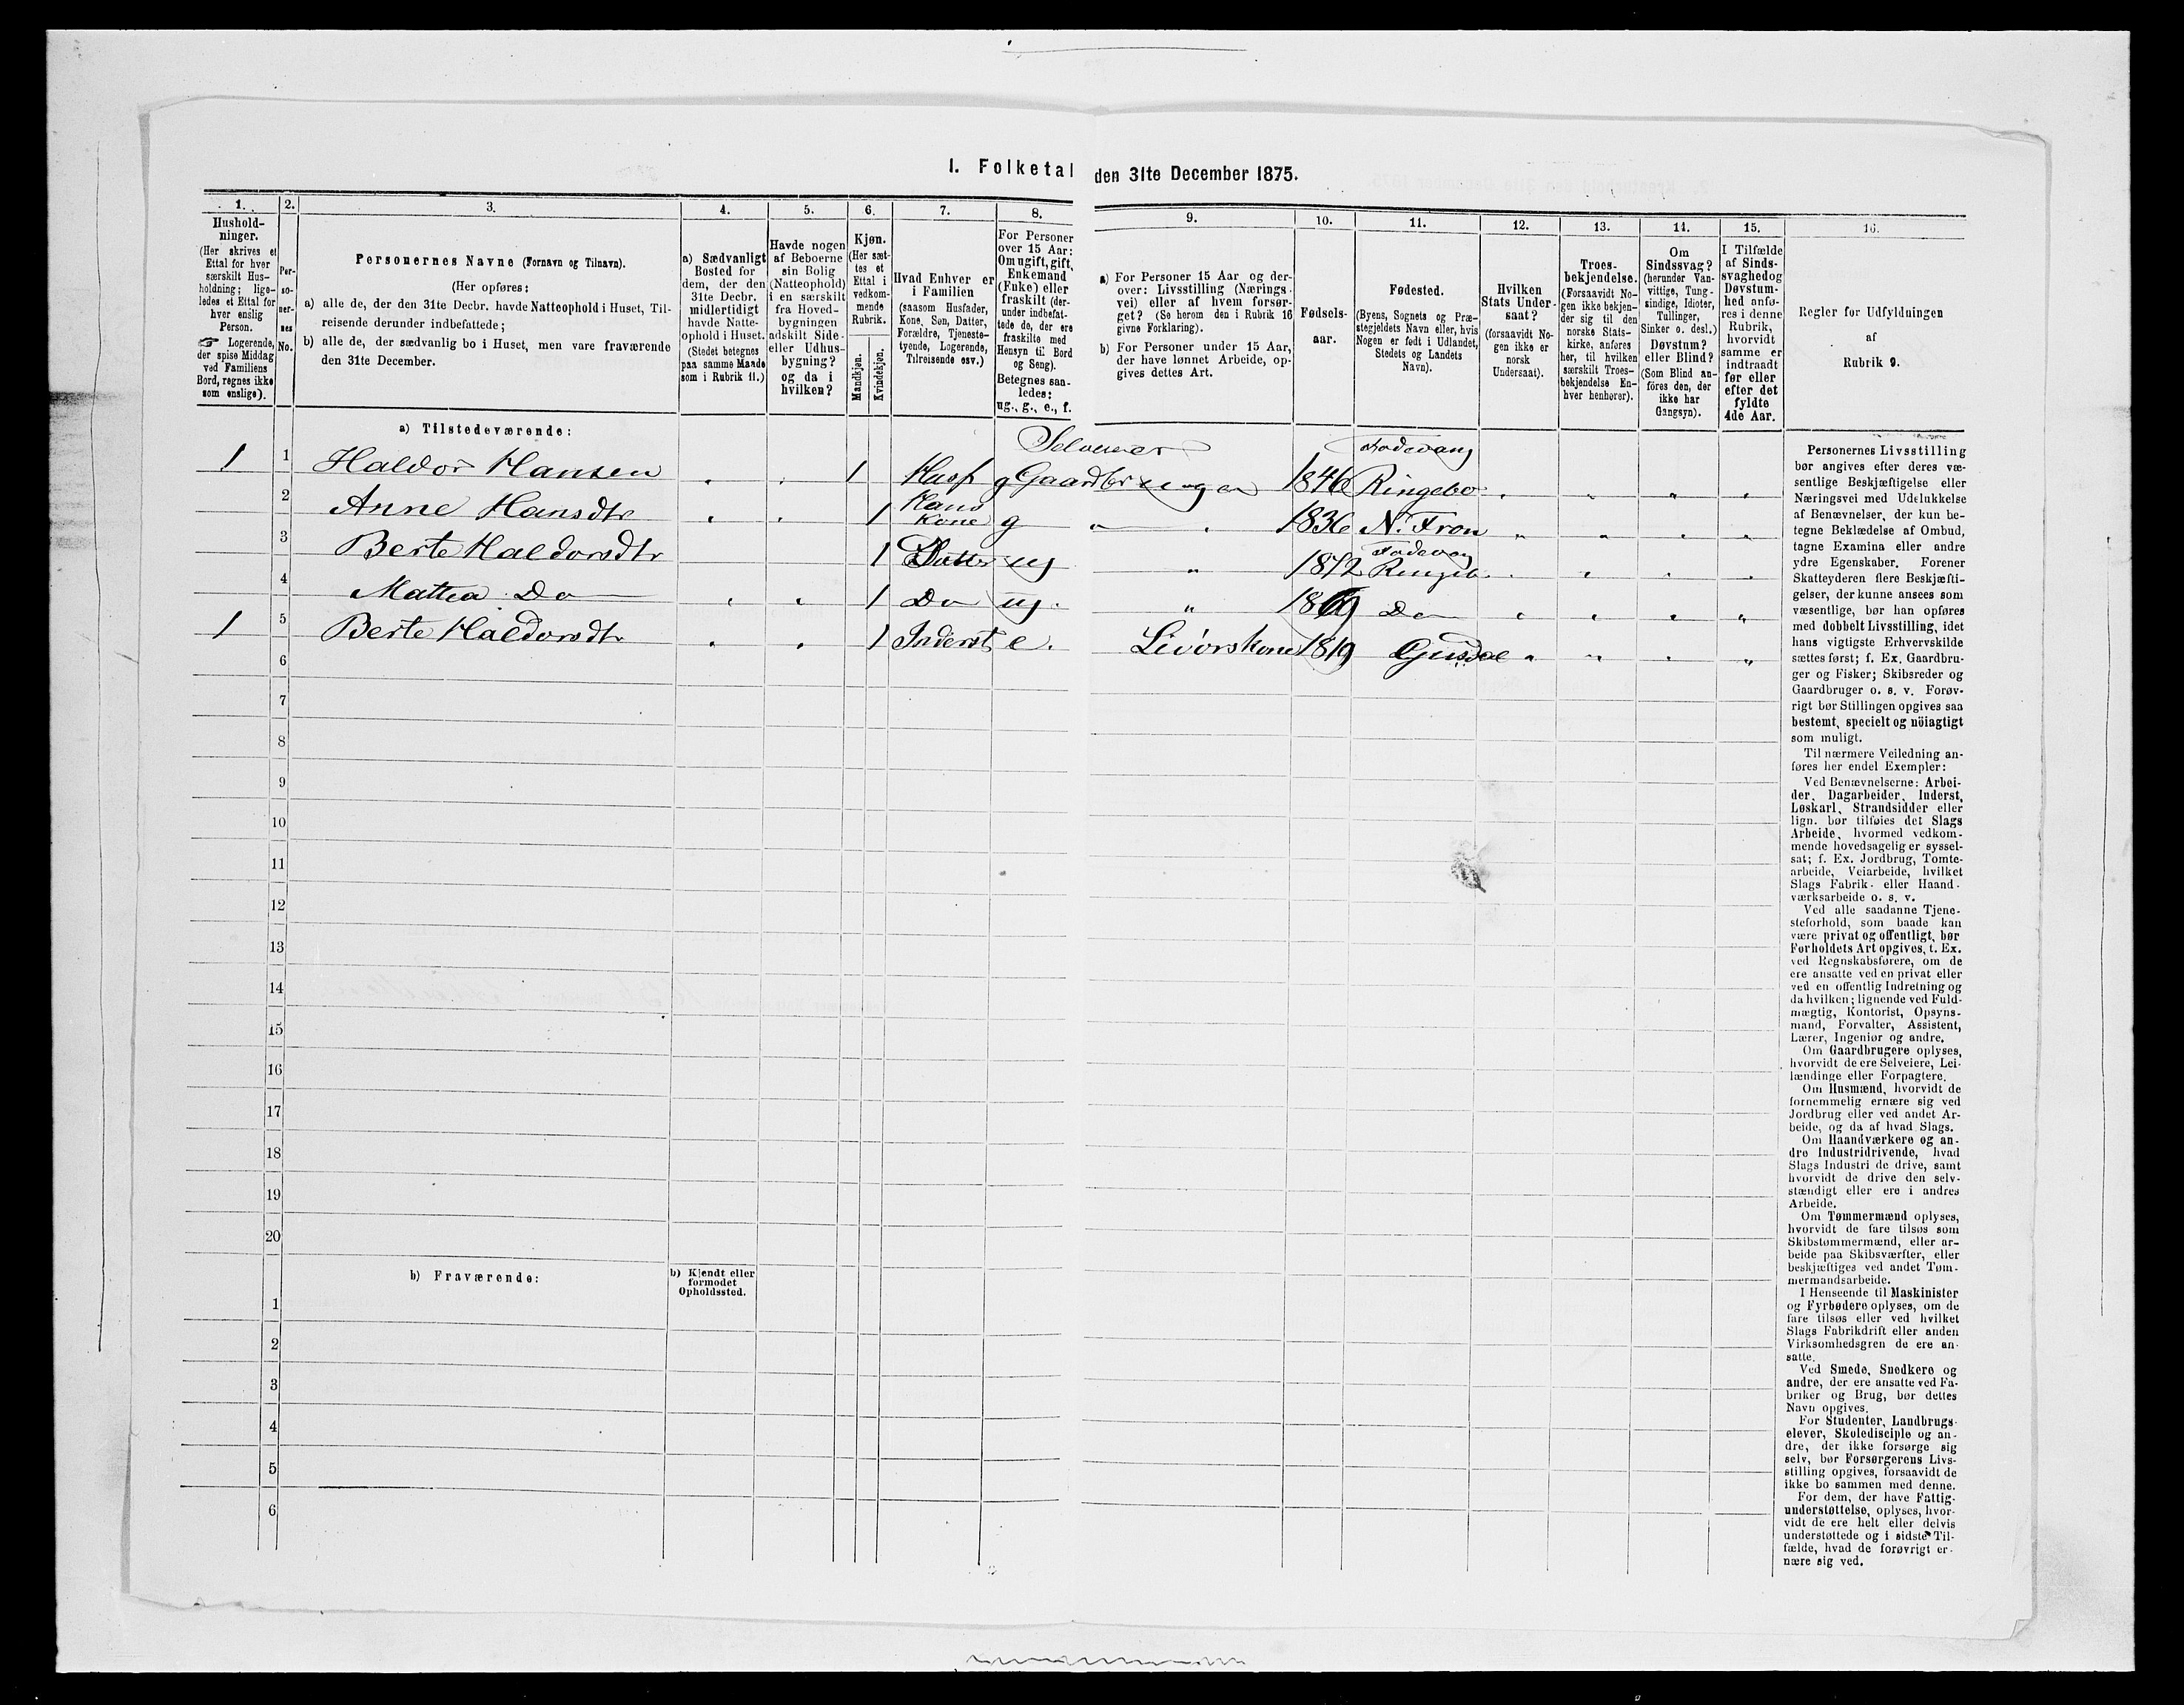 I. Folketal den 31te December 1875.
1.
Hushold-
ninger.
(Her skrives et
Ettal for hver
særskilt Hus-
holdning; lige-
ledes et Ettal for
hver enslig
Person.
☞ Logerende,
der spise Middag
ved Familiens
Bord, regnes ikke
som enslige).
2.
Per-
so-
ner-
nes
No.
3.
Personernes Navne (Fornavn og Tilnavn).
(Her opføres:
a) alle de, der den 31te Decbr. havde Natteophold i Huset, Til-
reisende derunder indbefattede;
b) alle de, der sædvanlig bo i Huset, men vare fraværende
den 31te December.
4.
a) Sædvanligt
Bosted for
dem, der den
31te Decbr.
midlertidigt
havde Natte-
ophold i Huset.
(Stedet betegnes
paa samme Maade
som i Rubrik 11.)
5.
Havde nogen
af Beboerne
sin Bolig
(Natteophold)
i en særskilt
fra Hoved-
bygningen
adskilt Side-
eller Udhus-
bygning?
og da i
hvilken?
6.
Kjøn.
(Her sæt-
tes et
Ettal i
vedkom-
mende
Rubrik.
Mandkjøn.
Kvindekjøn.
7.
Hvad Enhver er
i Familien
(saasom Husfader,
Kone, Søn, Datter,
Forældre, Tjeneste-
tyende, Logerende,
Tilreisende osv.)
8.
For Personer
over 15 Aar:
Om ugift, gift,
Enkemand
(Enke) eller
fraskilt (der-
under indbefat-
tede de, der ere
fraskilte med
Hensyn til Bord
og Seng).
Betegnes saa-
ledes:
ug., g., e., f.
9.
a) For Personer 15 Aar og der-
over: Livsstilling (Nærings-
vei) eller af hvem forsør-
get? (Se herom den i Rubrik 16
givne Forklaring).
b) For Personer under 15 Aar,
der have lønnet Arbeide, op-
gives dettes Art.
10.
Fødsels-
aar.
11.
Fødested.
(Byens, Sognets og Præ-
stegjeldets Navn eller, hvis
Nogen er født i Udlandet,
Stedets og Landets
Navn).
12.
Hvilken
Stats Under-
saat?
(forsaavidt No-
gen ikke er
norsk
Undersaat).
13.
Troes-
bekjendelse.
(Forsaavidt No-
gen ikke bekjen-
der sig til den
norske Stats-
kirke, anføres
her, til hvilken
særskilt Troes-
bekjendelse En-
hver henhører).
14.
Om
Sindssvag?
(herunder Van-
vittige, Tung-
sindige, Idioter,
Tullinger,
Sinker o. desl.)
Døvstum?
eller Blind?
(Som Blind an-
föres den, der
ikke har
Gangsyn).
15.
I Tilfælde
af Sinds-
svaghed og
Døvstum-
hed anfø-
res i denne
Rubrik,
hvorvidt
samme er
indtraadt
før eller
efter det
fyldte
4de Aar.
16.
Regler for Udfyldningen
af
Rubrik 9.
a) Tilstedeværende:
Selveier Fodevang
1 1 Haldor Hansen 1 Husf g Gaardbruger 1846 Ringebo
2 Anne Hansdtr 1 Hans Kone g 1836 N. Fron
Fodevang
3 Berte Haldorsdtr 1 Datter ug 1872 Ringeb
4 Mattea Do 1 Do ug. 1869 Do
1 5 Berte Haldorsdtr 1 Inderst e. Livörskone 1819 Gusdal
6
7
8
9
10
11
12
13
14
15
16
17
18
19
20
b) Fraværende:
b) Kjendt eller
formodet
Opholdssted.
1
2
3
4
5
6
Personernes Livsstilling
bør angives efter deres væ-
sentlige Beskjæftigelse eller
Næringsvei med Udelukkelse
af Benævnelser, der kun be-
tegne Beklædelse af Ombud,
tagne Examina eller andre
ydre Egenskaber. Forener
Skatteyderen flere Beskjæfti-
gelser, der kunne ansees som
væsentlige, bør han opføres
med dobbelt Livsstilling, idet
hans vigtigste Erhvervskilde
sættes først; f. Ex. Gaardbru-
ger og Fisker; Skibsreder og
Gaardbruger o. s. v. Forøv-
rigt bør Stillingen opgives saa
bestemt, specielt og nöiagtigt
som muligt.
Til nærmere Veiledning an-
føres her endel Exempler:
Ved Benævnelserne: Arbei-
der, Dagarbeider, Inderst,
Løskarl, Strandsidder eller
lign. bør tilføies det Slags
Arbeide, hvormed vedkom-
mende hovedsagelig er syssel-
sat; f. Ex. Jordbrug, Tomte-
arbeide, Veiarbeide, hvilket
Slags Fabrik- eller Haand-
værksarbeide o. s. v.
Ved alle saadanne Tjene-
steforhold, som baade kan
være privat og offentligt, bør
Forholdets Art opgives, t. Ex.
ved Regnskabsførere, om de
ere ansatte ved en privat eller
ved en offentlig Indretning og
da hvilken; lignende ved Fuld-
mægtig, Kontorist, Opsyns-
mand, Forvalter, Assistent,
Lærer, Ingeniør og andre.
Om Gaardbrugere oplyses,
hvorvidt de ere Selveiere, Lei-
lændinge eller Forpagtere.
Om Husmænd, hvorvidt de
fornemmelig ernære sig ved
Jordbrug eller ved andet Ar-
beide, og da af hvad Slags.
Om Haandværkere og an-
dre Industridrivende, hvad
Slags Industri de drive, samt
hvorvidt de drive den selv-
stændigt eller ere i andres
Arbeide.
Om Tømmermænd oplyses,
hvorvidt de fare tilsøs som
Skibstømmermænd, eller ar-
beide paa Skibsværfter, eller
beskjæftiges ved andet Tøm-
mermandsarbeide.
I Henseende til Maskinister
og Fyrbødere oplyses, om de
fare tilsøs eller ved hvilket
Slags Fabrikdrift eller anden
Virksomhedsgren de ere an-
satte.
Ved Smede, Snedkere og
andre, der ere ansatte ved Fa-
briker og Brug, bør dettes
Navn opgives.
For Studenter, Landbrugs-
elever, Skoledisciple og an-
dre, der ikke forsørge sig
selv, bør Forsørgerens Livs-
stilling opgives, forsaavidt de
ikke bo sammen med denne.
For dem, der have Fattig-
understøttelse, oplyses, hvor-
vidt de ere helt eller delvis
understøttede og i sidste Til-
fælde, hvad de forøvrigt er-
nære sig ved.